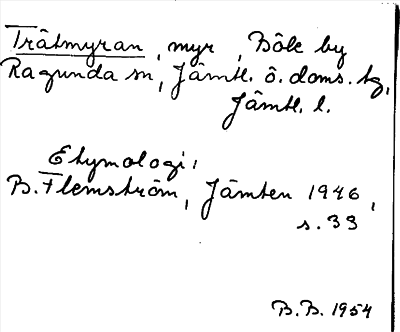 Trätmyran, myr, Böle by
Ragunda sn, Jämtl. ö. doms. tg,
Jämtl. l.
Etymologi:
B. Flemström, Jämten 1946,
s. 33
B.B. 1954